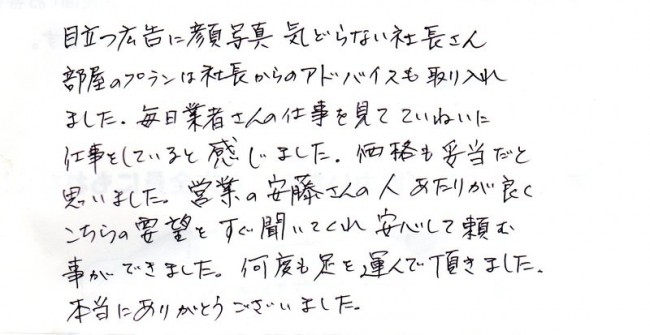 目立つ広告に顔写真 気どらない社長さん
部屋のプランは社長からのアドバイスも取り入れ
ました。毎日業者さんの仕事を見てていねいに
仕事をしていると感じました。価格も妥当だと
思いました。営業の安藤さんの人あたりが良く
こちらの要望をすぐ聞いてくれ安心して頼む
事ができました。何度も足を運んで頂きました。
本当にありがとうございました。